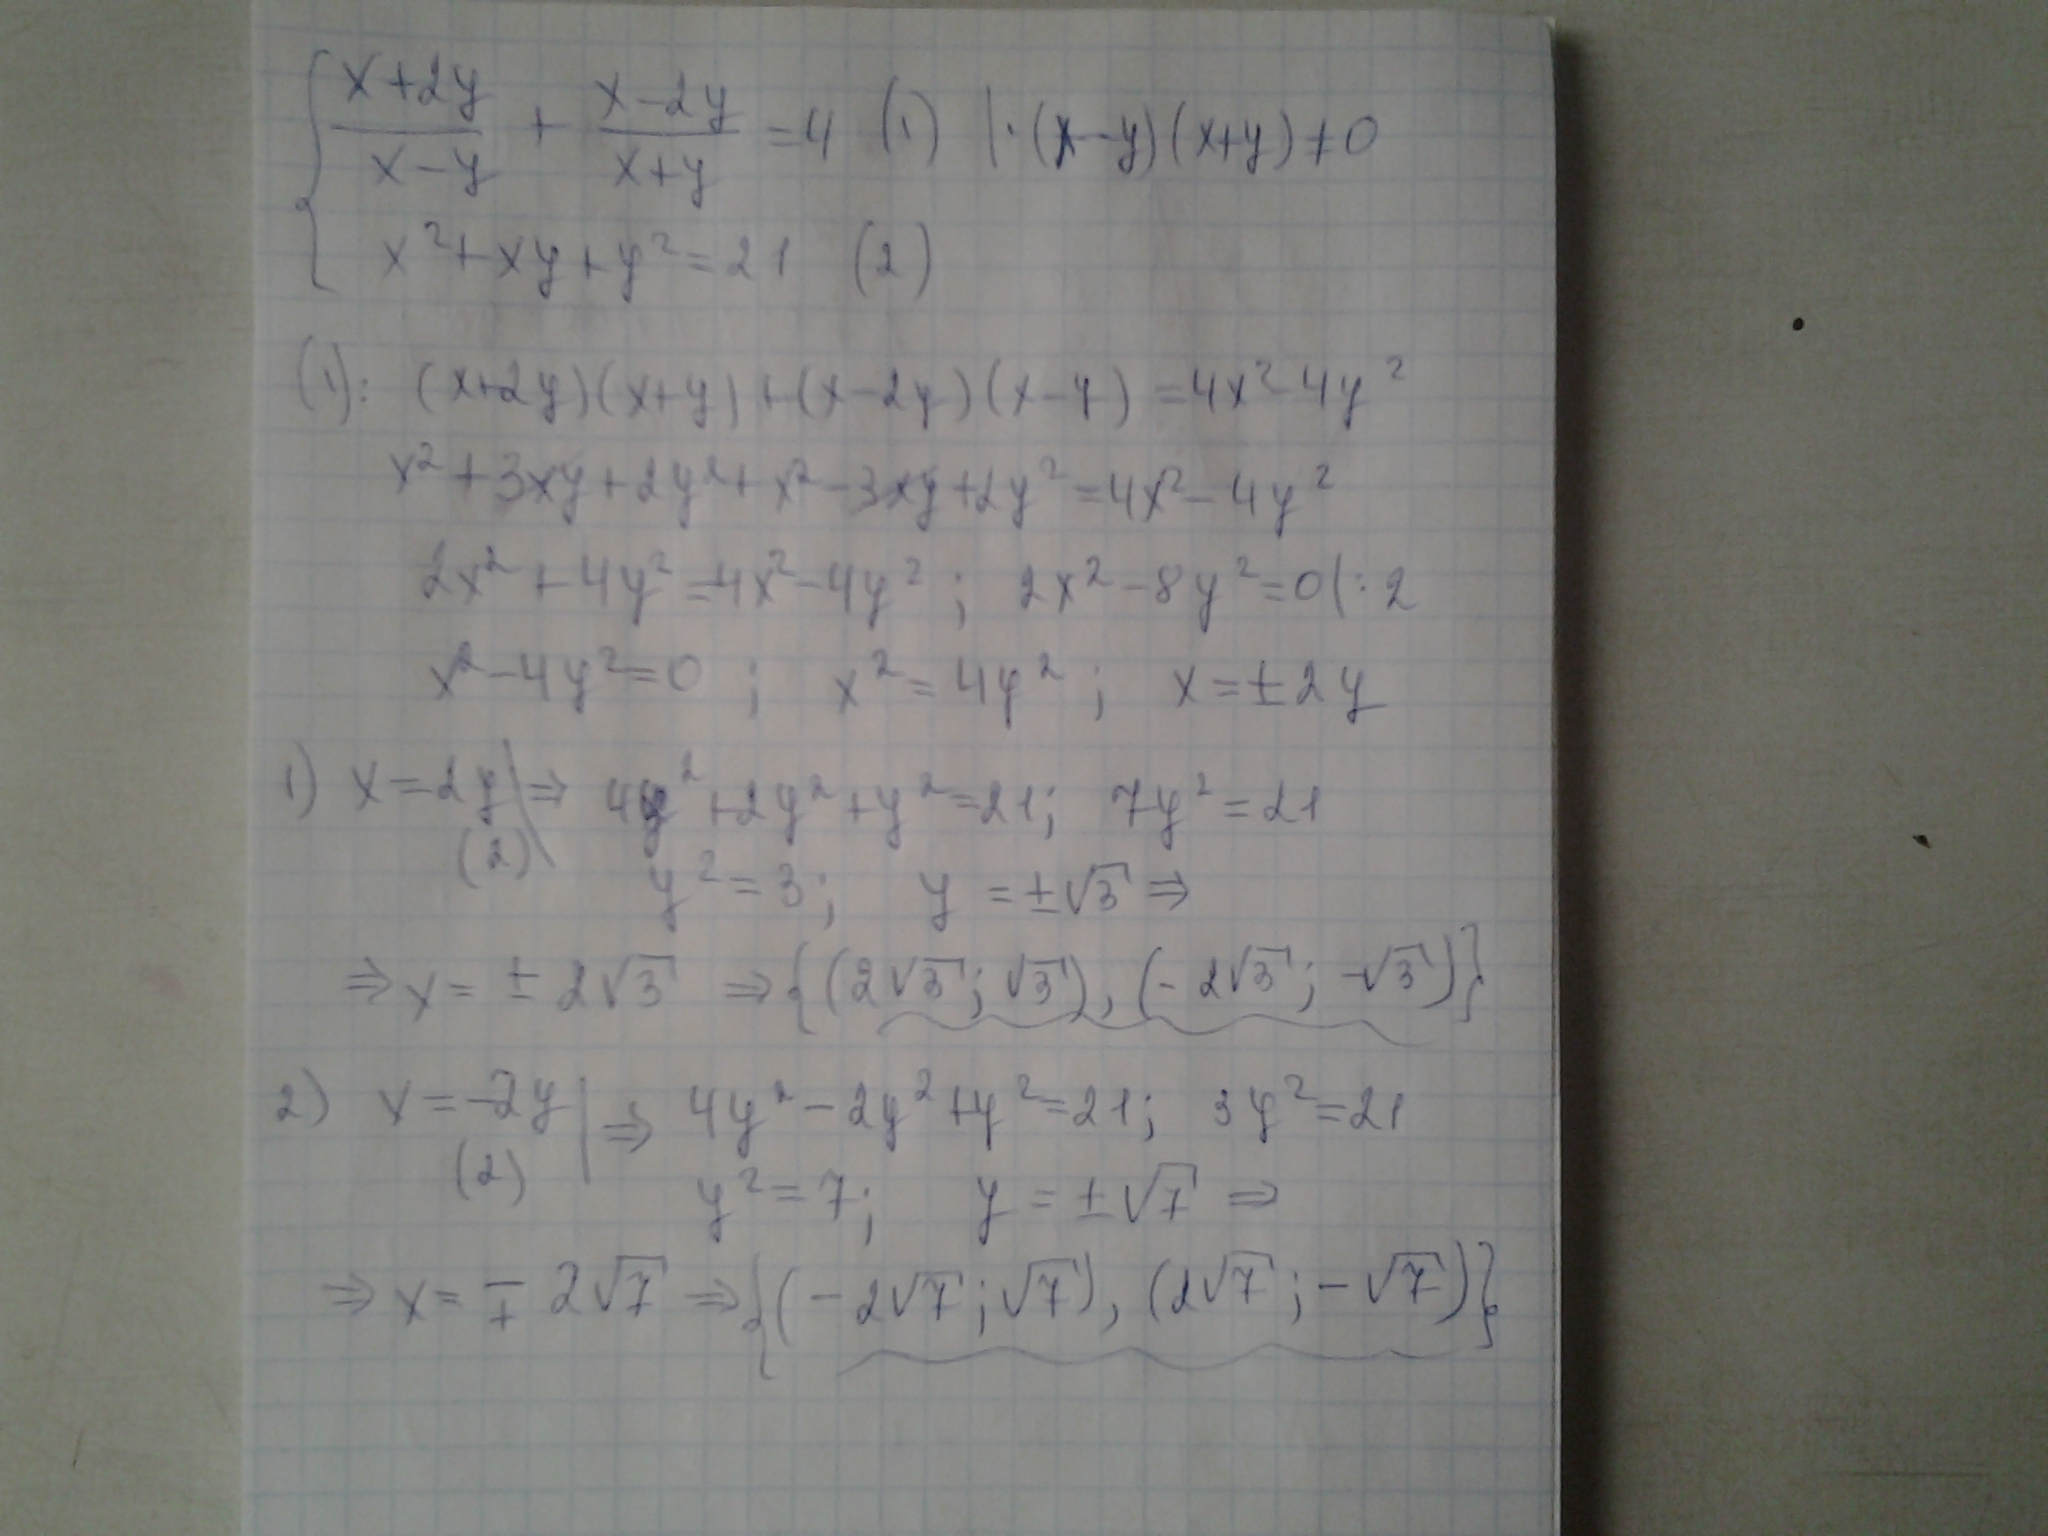 { (x+2y)/(x-y) + (x-2y)/(x+y) = 4 (1) | · (x-y)(x+y) ≠ 0
x² + xy + y² = 21 (2)
(1): (x+2y)(x+y) + (x-2y)(x-y) = 4x² - 4y²
x² + 3xy + 2y² + x² - 3xy + 2y² = 4x² - 4y²
2x² + 4y² = 4x² - 4y² ; 2x² - 8y² = 0 | : 2
x² - 4y² = 0 ; x² = 4y² ; x = ± 2y
1) x = 2y | ⇒ 4y² + 2y² + y² = 21; 7y² = 21
(2)
y² = 3; y = ±√3 ⇒
⇒ x = ± 2√3 ⇒ {(2√3; √3), (-2√3; -√3)}
2) x = -2y | ⇒ 4y² - 2y² + y² = 21; 3y² = 21
(2)
y² = 7; y = ±√7 ⇒
⇒ x = ∓ 2√7 ⇒ {(-2√7; √7), (2√7; -√7)}